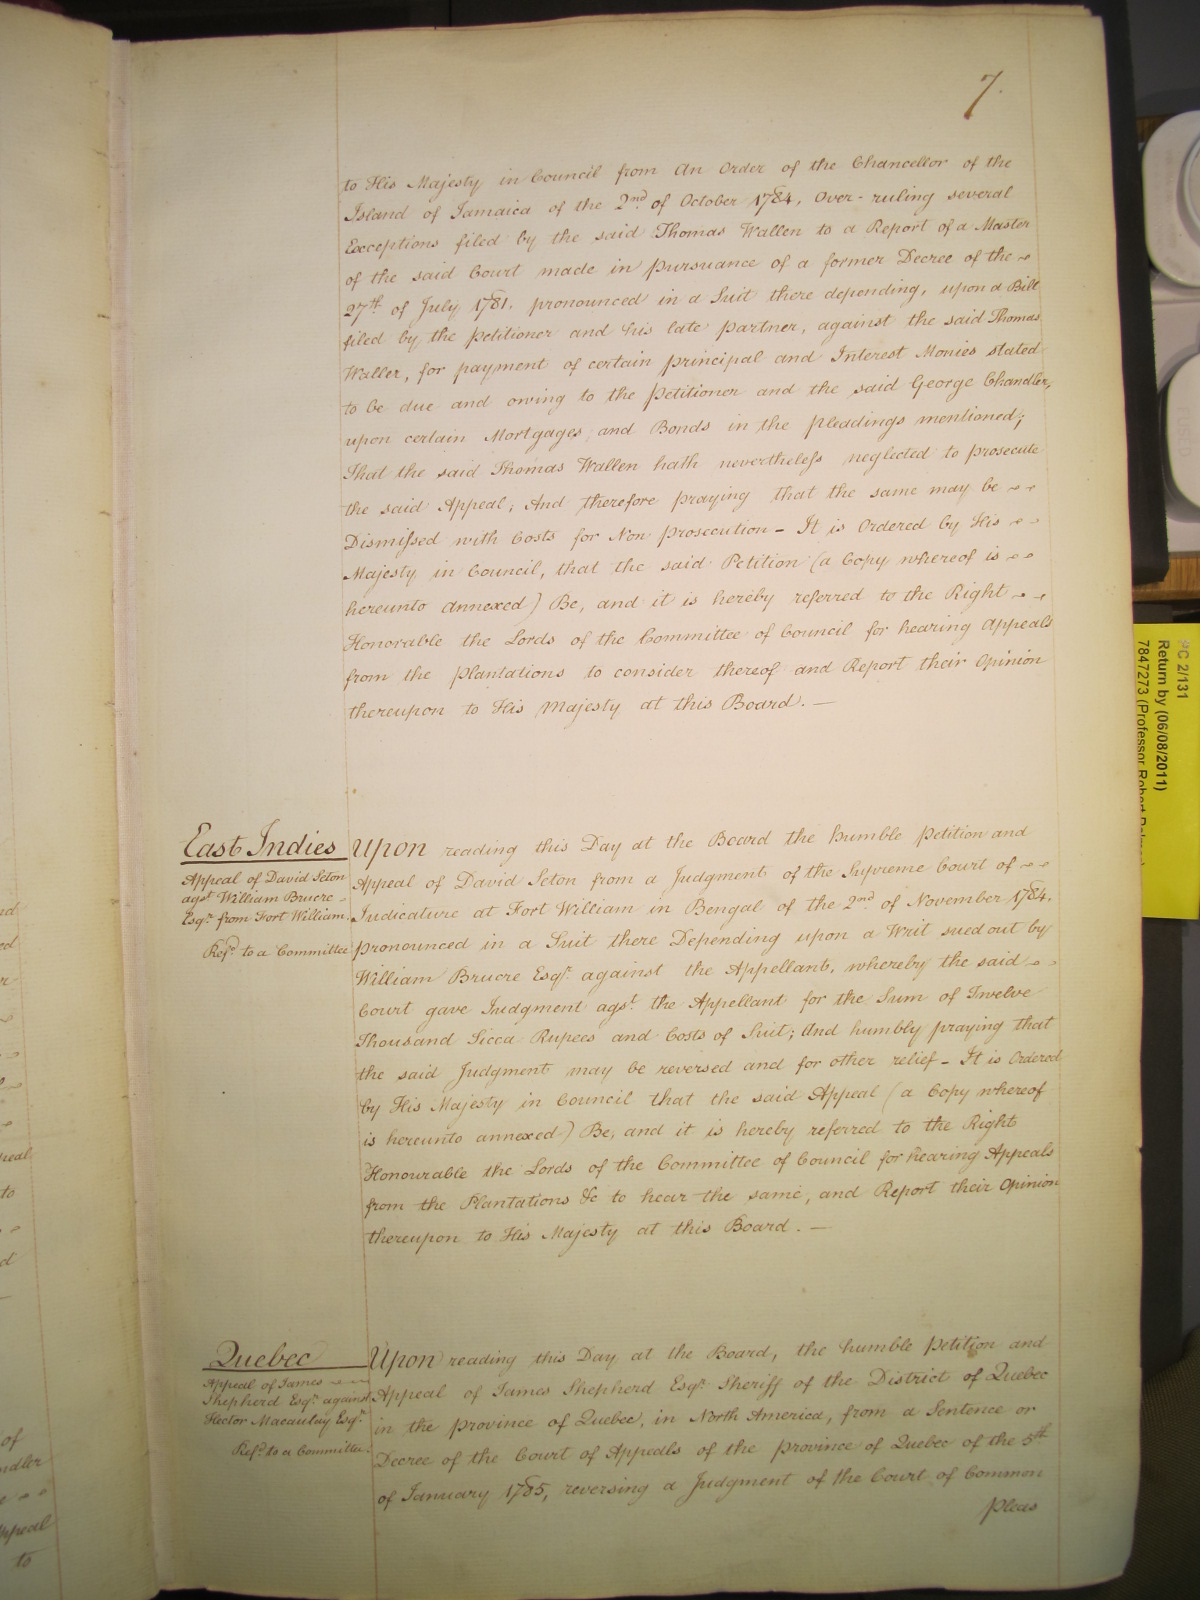 7.
to His Majesty in Council from An Order of the Chancellor of the
Island of Jamaica of the 2nd of October 1784, Over-ruling several
Exceptions filed by the said Thomas Wallen to a Report of a Master
of the said Court made in pursuance of a former Decree of the
27th of July 1781. pronounced in a Suit there depending, upon a Bill
filed by the Petitioner and his late partner, against the said Thomas
Wallen, for payment of certain principal and Interest Monies stated
to be due and owing to the Petitioner and the said George Chandler,
upon certain Mortgages, and Bonds in the pleadings mentioned;
That the said Thomas Wallen hath nevertheless neglected to prosecute
the said Appeal; And therefore praying that the same may be
Dismissed with Costs for Non prosecution - It is Ordered by His
Majesty in Council, that the said Petition (a Copy whereof is
hereunto annexed) Be, and it is hereby referred to the Right
Honorable the Lords of the Committee of Council for hearing Appeals
from the Plantations to consider thereof and Report their Opinion
thereupon to His Majesty at this Board. —
East Indies
Appeal of David Seton
agst William Brucre
Esqr. from Fort William.
Refd. to a Committee
Upon reading this Day at the Board the humble Petition and
Appeal of David Seton from a Judgment of the Supreme Court of
Judicature at Fort William in Bengal of the 2nd of November 1784.
pronounced in a Suit there Depending upon a Writ sued out by
William Brucre Esqr. against the Appellant, whereby the said
Court gave Judgment agst. the Appellant for the Sum of Twelve
Thousand Sicca Rupees and Costs of Suit; And humbly praying that
the said Judgment may be reversed and for other relief - It is Ordered
by His Majesty in Council that the said Appeal (a Copy whereof
is hereunto annexed) Be, and it is hereby referred to the Right
Honourable the Lords of the Committee of Council for hearing Appeals
from the Plantations &c to hear the same, and Report their Opinion
thereupon to His Majesty at this Board. —
Quebec
Appeal of James
Shepherd Esqr. against
Hector Macaulay Esqr.
Refd. to a Committee.
Upon reading this Day at the Board, the humble Petition and
Appeal of James Shepherd Esqr. Sheriff of the District of Quebec
in the province of Quebec, in North America, from a Sentence or
Decree of the Court of Appeals of the province of Quebec of the 5th
of January 1785, reversing a Judgment of the Court of Common
Pleas
PC 2/131
Return by (06/08/2011)
7847273 (Professor Robert